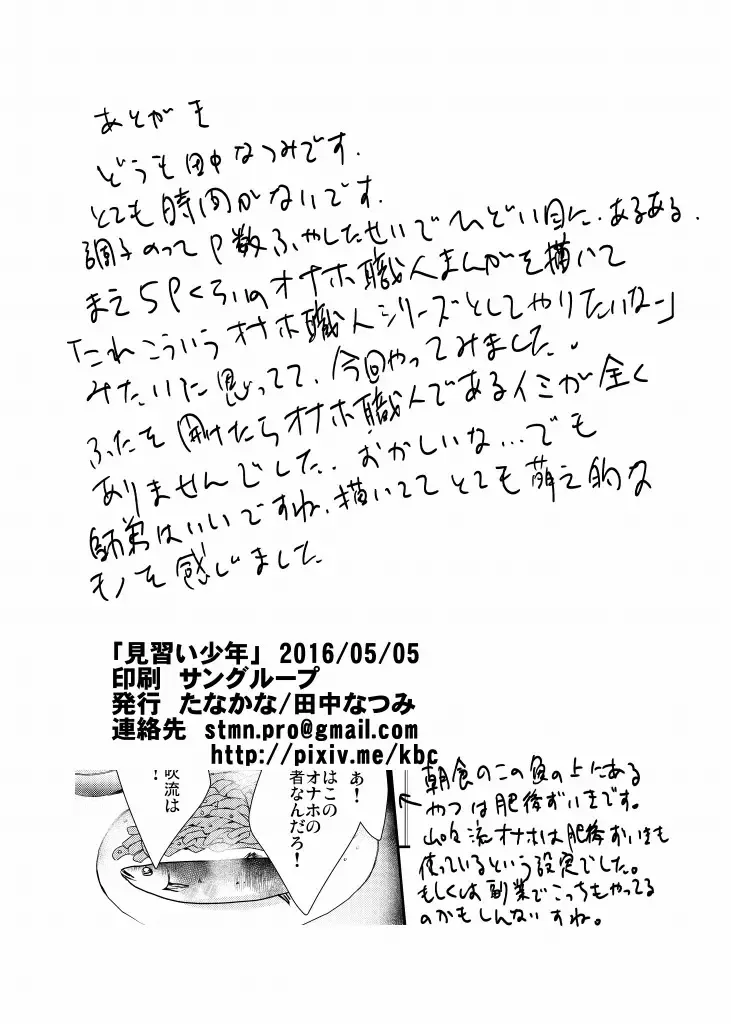 あとがき
どうも田中なつみです.
とても時間がないです.
調子のってP数ふやしたせいでひどい目に.あるある.
まえ5Pくらいのオナホ職人まんがを描いて
「これこういうオナホ職人シリーズとしてやりたいなー」
みたいに思ってて、今回やってみました。
ふたを開けたらオナホ職人であるイミが全く
ありませんでした.おかしいな…でも
師弟はいいですね.描いててとても萌え的な
モノを感じました
「見習い少年」 2016/05/05
印刷 サングループ
発行 たなかな/田中なつみ
連絡先 stmn.pro@gmail.com
http://pixiv.me/kbc
ぁ!
はこの
オナホの
者なんだろ!
吹流は
!
朝食のこの魚の上にある
やつは肥後ずいきです。
山吹流オナホは肥後ずいきも
使っているという設定でした。
もしくは副業でこっちもやってる
のかもしんないすね。